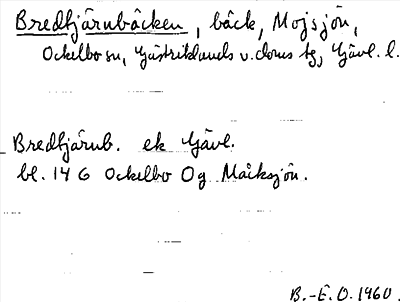 Bredtjärnbäcken, bäck, Mojsjön,
Ockelbo sn, Gästriklands v. doms tg, Gävl. l.
Bredtjärnb. ek Gävl.
bl. 146 Ockelbo Og Måiksjön.
B.-E. O. 1960.